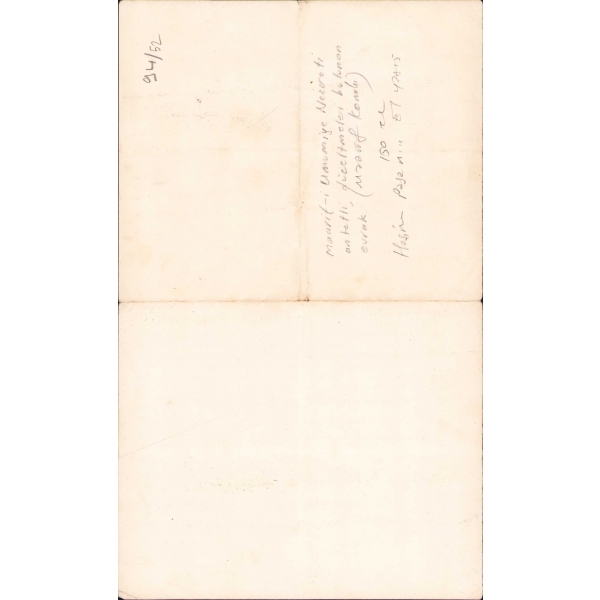 94/52
Maarif-i Umumiye Nezareti
antetli, düzeltmeleri bulunan
evrak (Maarif konulu)
150 TL
Haşim Paşa'nın El yazısı